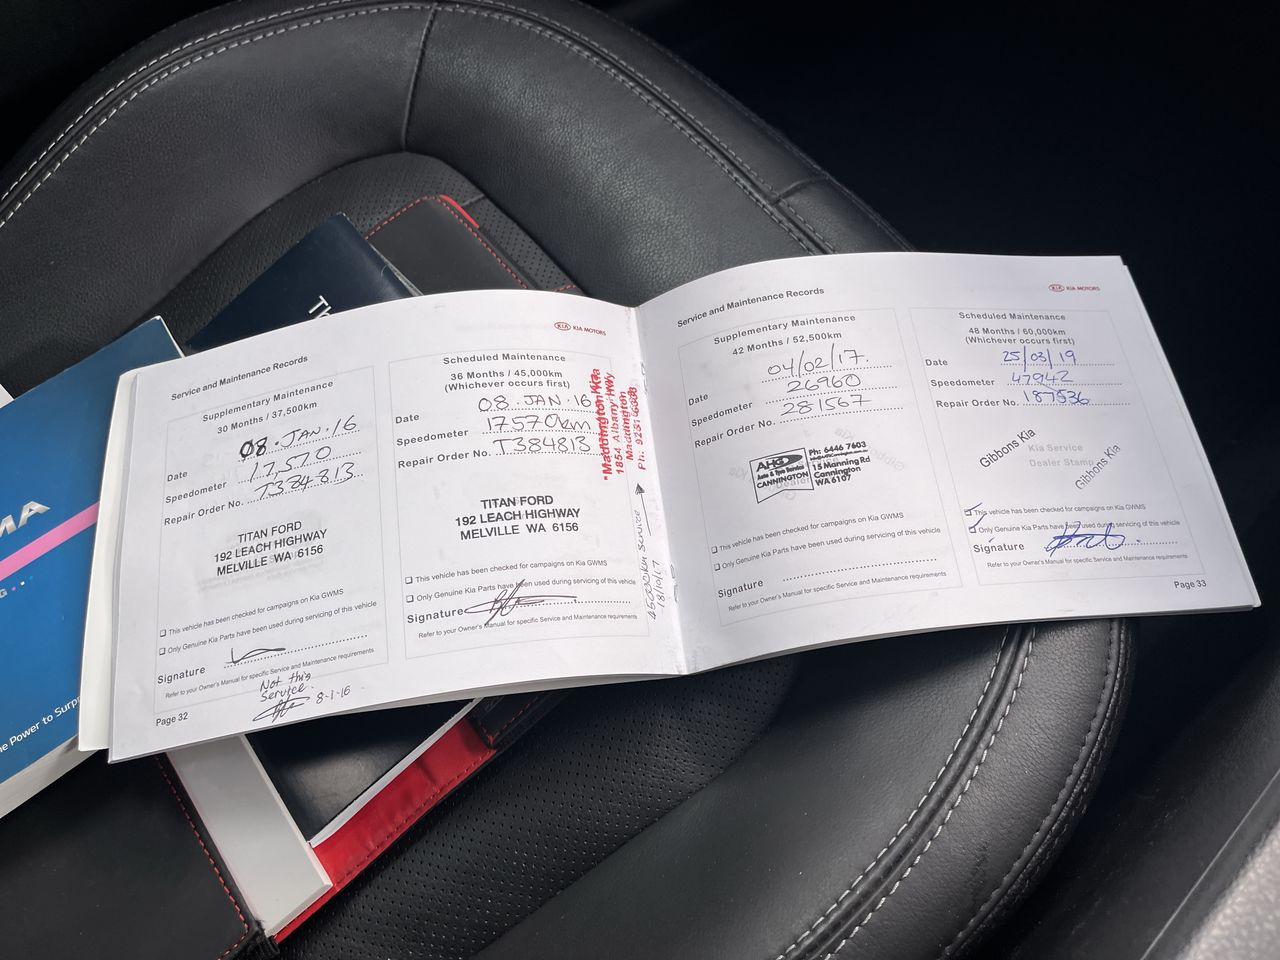 MA
The Power to Surp
Th
Service and Maintenance Records
KIA MOTORS
Supplementary Maintenance
30 Months / 37,500km
Date 08. JAN. 16
Speedometer 17,570
Repair Order No. T384813
TITAN FORD
192 LEACH HIGHWAY
MELVILLE WA 6156
This vehicle has been checked for campaigns on Kia GWMS
Only Genuine Kia Parts have been used during servicing of this vehicle
Signature
Refer to your Owner's Manual for specific Service and Maintenance requirements
Not this
Service.
8-1-16
Page 32
Scheduled Maintenance
36 Months / 45,000km
(Whichever occurs first)
Date 08. JAN. 16
Speedometer 17570km
Repair Order No. T384813
TITAN FORD
192 LEACH HIGHWAY
MELVILLE WA 6156
This vehicle has been checked for campaigns on Kia GWMS
Only Genuine Kia Parts have been used during servicing of this vehicle
Signature
Refer to your Owner's Manual for specific Service and Maintenance requirements
"Maddington Kia
1854 Albany Hwy
Maddington
45000km Service
18/10/17
Service and Maintenance Records
KIA MOTORS
Supplementary Maintenance
42 Months / 52,500km
Date 04/02/17.
Speedometer 26960
Repair Order No. 281567
AHG
Auto & Tyre Service
CANNINGTON
Ph: 6446 7603
15 Manning Rd
Cannington
WA 6107
This vehicle has been checked for campaigns on Kia GWMS
Only Genuine Kia Parts have been used during servicing of this vehicle
Signature
Refer to your Owner's Manual for specific Service and Maintenance requirements
Scheduled Maintenance
48 Months / 60,000km
(Whichever occurs first)
Date 25/03/19
Speedometer 47942
Repair Order No. 187536
Gibbons Kia
Kia Service
Dealer Stamp
Gibbons Kia
This vehicle has been checked for campaigns on Kia GWMS
Only Genuine Kia Parts have been used during servicing of this vehicle
Signature
Refer to your Owner's Manual for specific Service and Maintenance requirements
Page 33